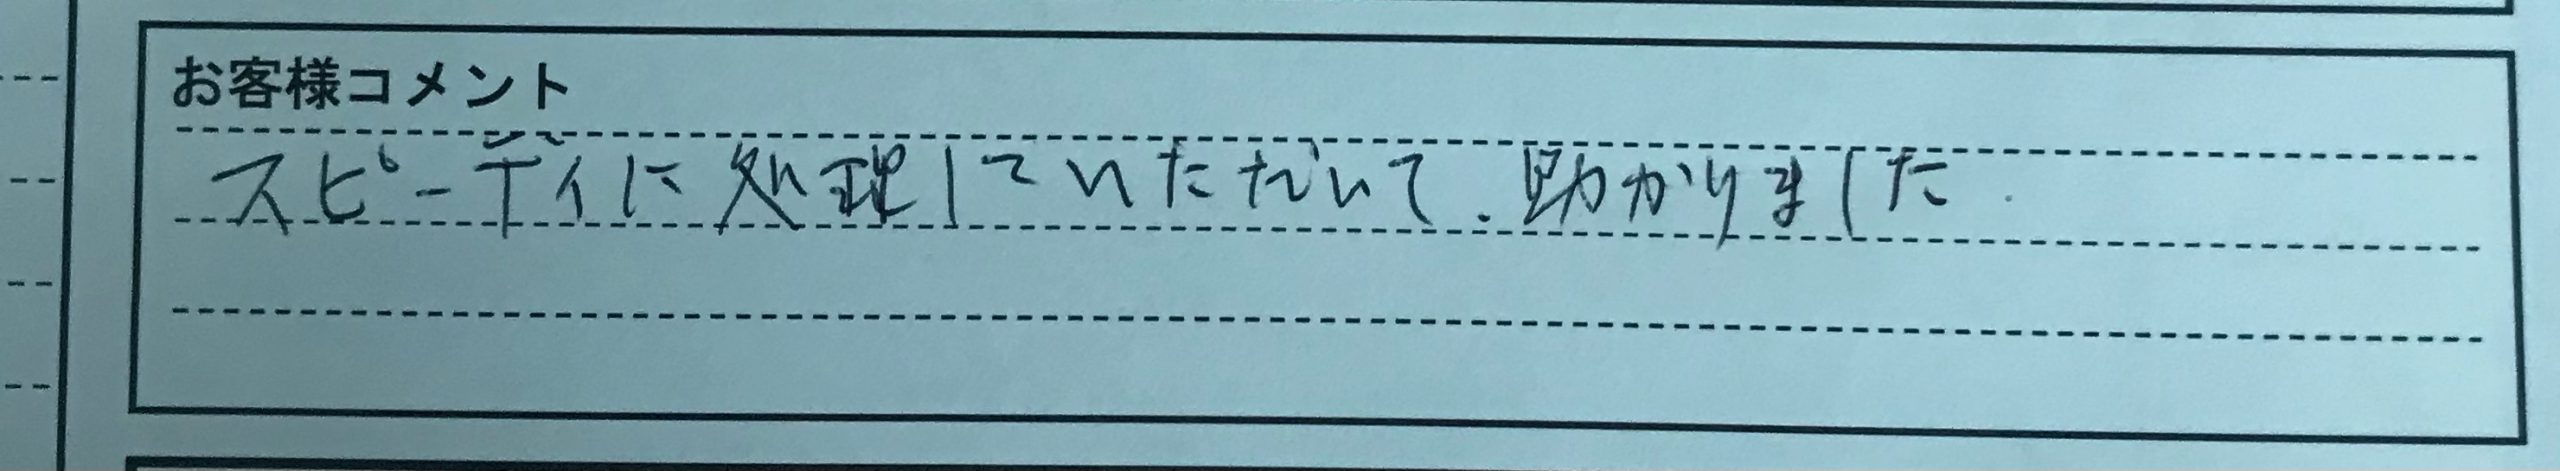 お客様コメント
スピーディに処理していただいて、助かりました.